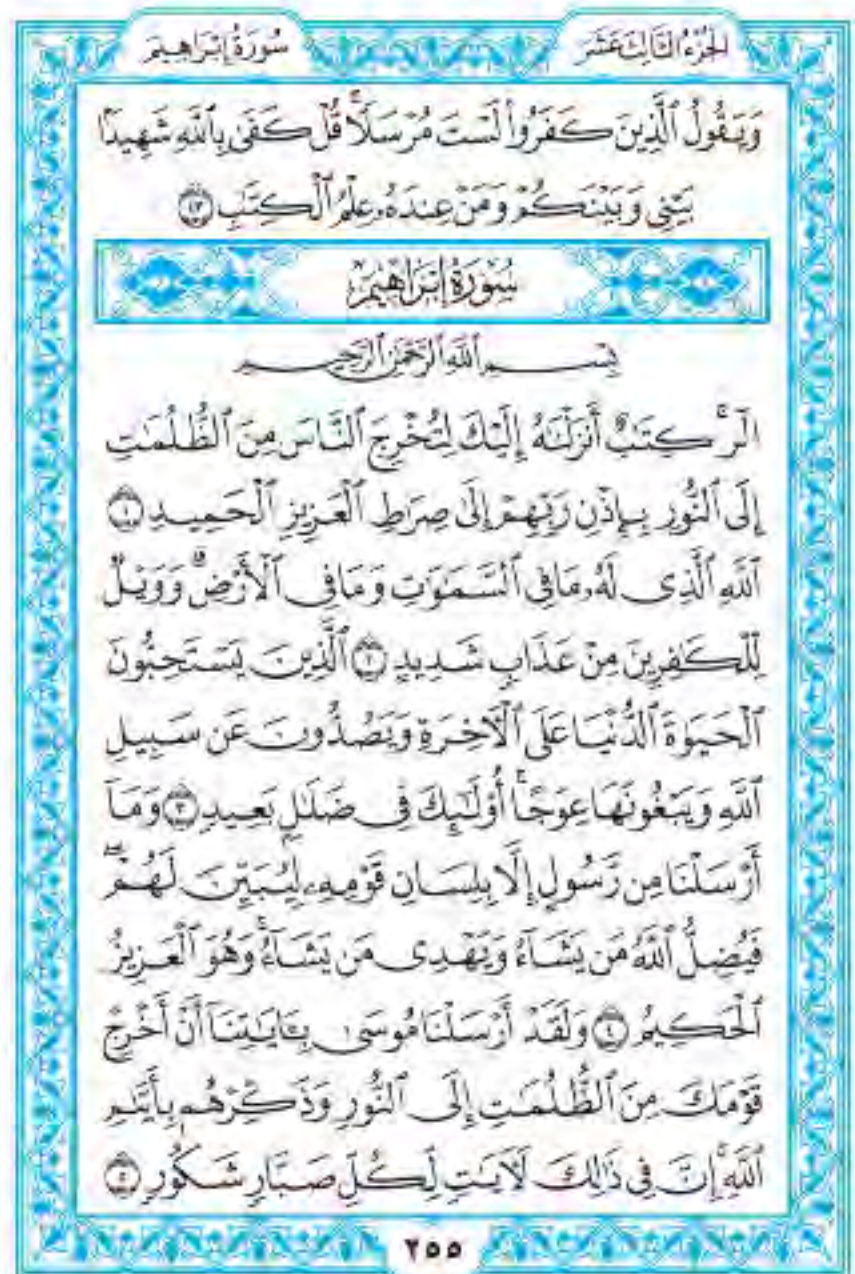 الجزء الثالث عشر
سورة إبراهيم
وَيَقُولُ ٱلَّذِينَ كَفَرُواْ لَسْتَ مُرْسَلًاۚ قُلْ كَفَىٰ بِٱللَّهِ شَهِيدًۢا
بَيْنِي وَبَيْنَكُمْ وَمَنْ عِندَهُۥ عِلْمُ ٱلْكِتَٰبِ ٤٣
سُورَةُ إِبْرَاهِيمَ
بِسْمِ ٱللَّهِ ٱلرَّحْمَٰنِ ٱلرَّحِيمِ
الٓرۚ كِتَٰبٌ أَنزَلْنَٰهُ إِلَيْكَ لِتُخْرِجَ ٱلنَّاسَ مِنَ ٱلظُّلُمَٰتِ
إِلَى ٱلنُّورِ بِإِذْنِ رَبِّهِمْ إِلَىٰ صِرَٰطِ ٱلْعَزِيزِ ٱلْحَمِيدِ ١
ٱللَّهِ ٱلَّذِي لَهُۥ مَا فِي ٱلسَّمَٰوَٰتِ وَمَا فِي ٱلْأَرْضِۗ وَوَيْلٌ
لِّلْكَٰفِرِينَ مِنْ عَذَابٍ شَدِيدٍ ٢ ٱلَّذِينَ يَسْتَحِبُّونَ
ٱلْحَيَوٰةَ ٱلدُّنْيَا عَلَى ٱلْأٓخِرَةِ وَيَصُدُّونَ عَن سَبِيلِ
ٱللَّهِ وَيَبْغُونَهَا عِوَجًاۚ أُوْلَٰٓئِكَ فِي ضَلَٰلٍۭ بَعِيدٍ ٣ وَمَآ
أَرْسَلْنَا مِن رَّسُولٍ إِلَّا بِلِسَانِ قَوْمِهِۦ لِيُبَيِّنَ لَهُمْۖ
فَيُضِلُّ ٱللَّهُ مَن يَشَآءُ وَيَهْدِي مَن يَشَآءُۚ وَهُوَ ٱلْعَزِيزُ
ٱلْحَكِيمُ ٤ وَلَقَدْ أَرْسَلْنَا مُوسَىٰ بِـَٔايَٰتِنَآ أَنْ أَخْرِجْ
قَوْمَكَ مِنَ ٱلظُّلُمَٰتِ إِلَى ٱلنُّورِ وَذَكِّرْهُم بِأَيَّىٰمِ
ٱللَّهِۚ إِنَّ فِي ذَٰلِكَ لَأٓيَٰتٍ لِّكُلِّ صَبَّارٍ شَكُورٍ ٥
٢٥٥